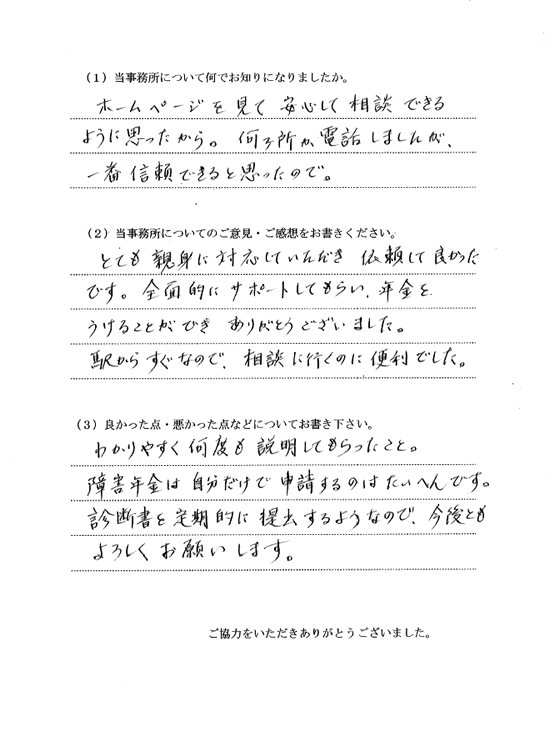 (1) 当事務所について何でお知りになりましたか。
ホームページを見て 安心して 相談 できる
ように思ったから。 何ヶ所か電話しましたが、
一番信頼できると思ったので。
(2) 当事務所についてのご意見・ご感想をお書きください。
とても 親身に対応していただき 依頼して良かった
です。全面的にサポートしてもらい、年金を
うけることができ ありがとうございました。
駅からすぐなので、相談に行くのに便利でした。
(3) 良かった点・悪かった点などについてお書き下さい。
わかりやすく何度も説明してもらったこと。
障害年金は自分だけで申請するのはたいへんです。
診断書を定期的に提出するようなので、今後とも
よろしくお願いします。
ご協力をいただきありがとうございました。